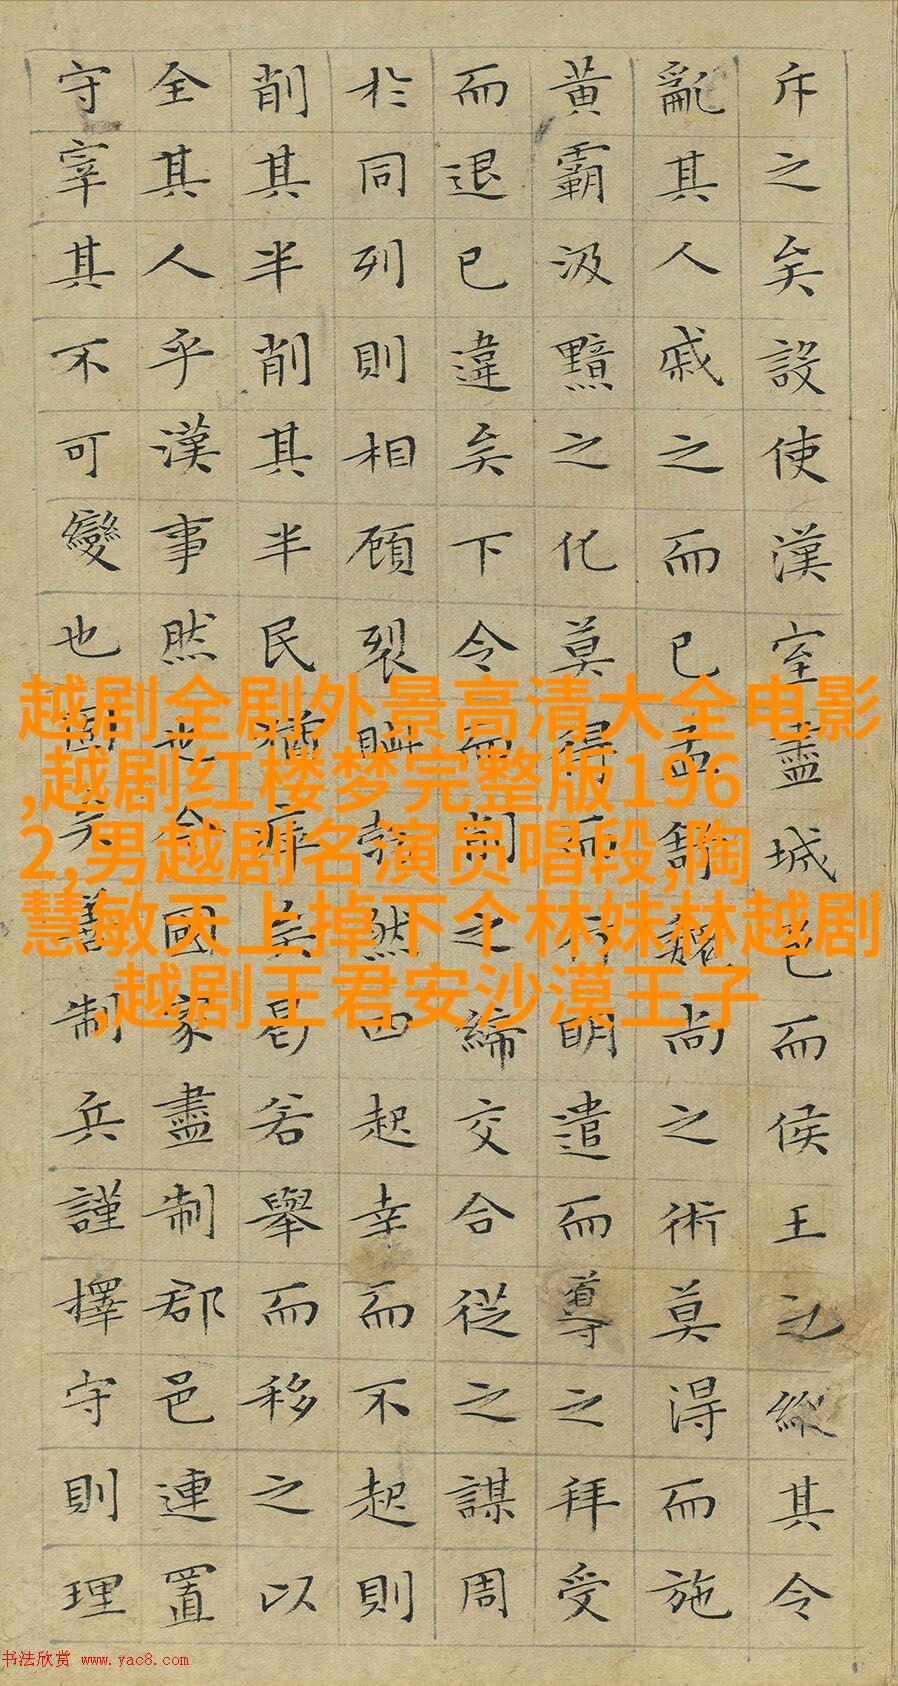 斥之矣設使漢室盡城邑而侯王之縱其令
亂其人戚之而已孟舒魏尚之術莫得而施
黃霸汲黯之化莫得而行明遣而導之拜受
而退已違矣下令而削之締交合從之謀周
於同列則相顧裂眥勃然而起幸而不起則
削其半削其半民猶瘁矣曷若舉而移之以
全其人乎漢事然也今國家盡制郡邑連置
守宰其不可變也固矣善制兵謹擇守則理
越剧全剧外景高清大全电影
,越剧红楼梦完整版196
2,男越剧名演员唱段,陶
慧敏天上掉下个林妹林越剧
,越剧王君安沙漠王子
书法欣赏 www.yac8.com